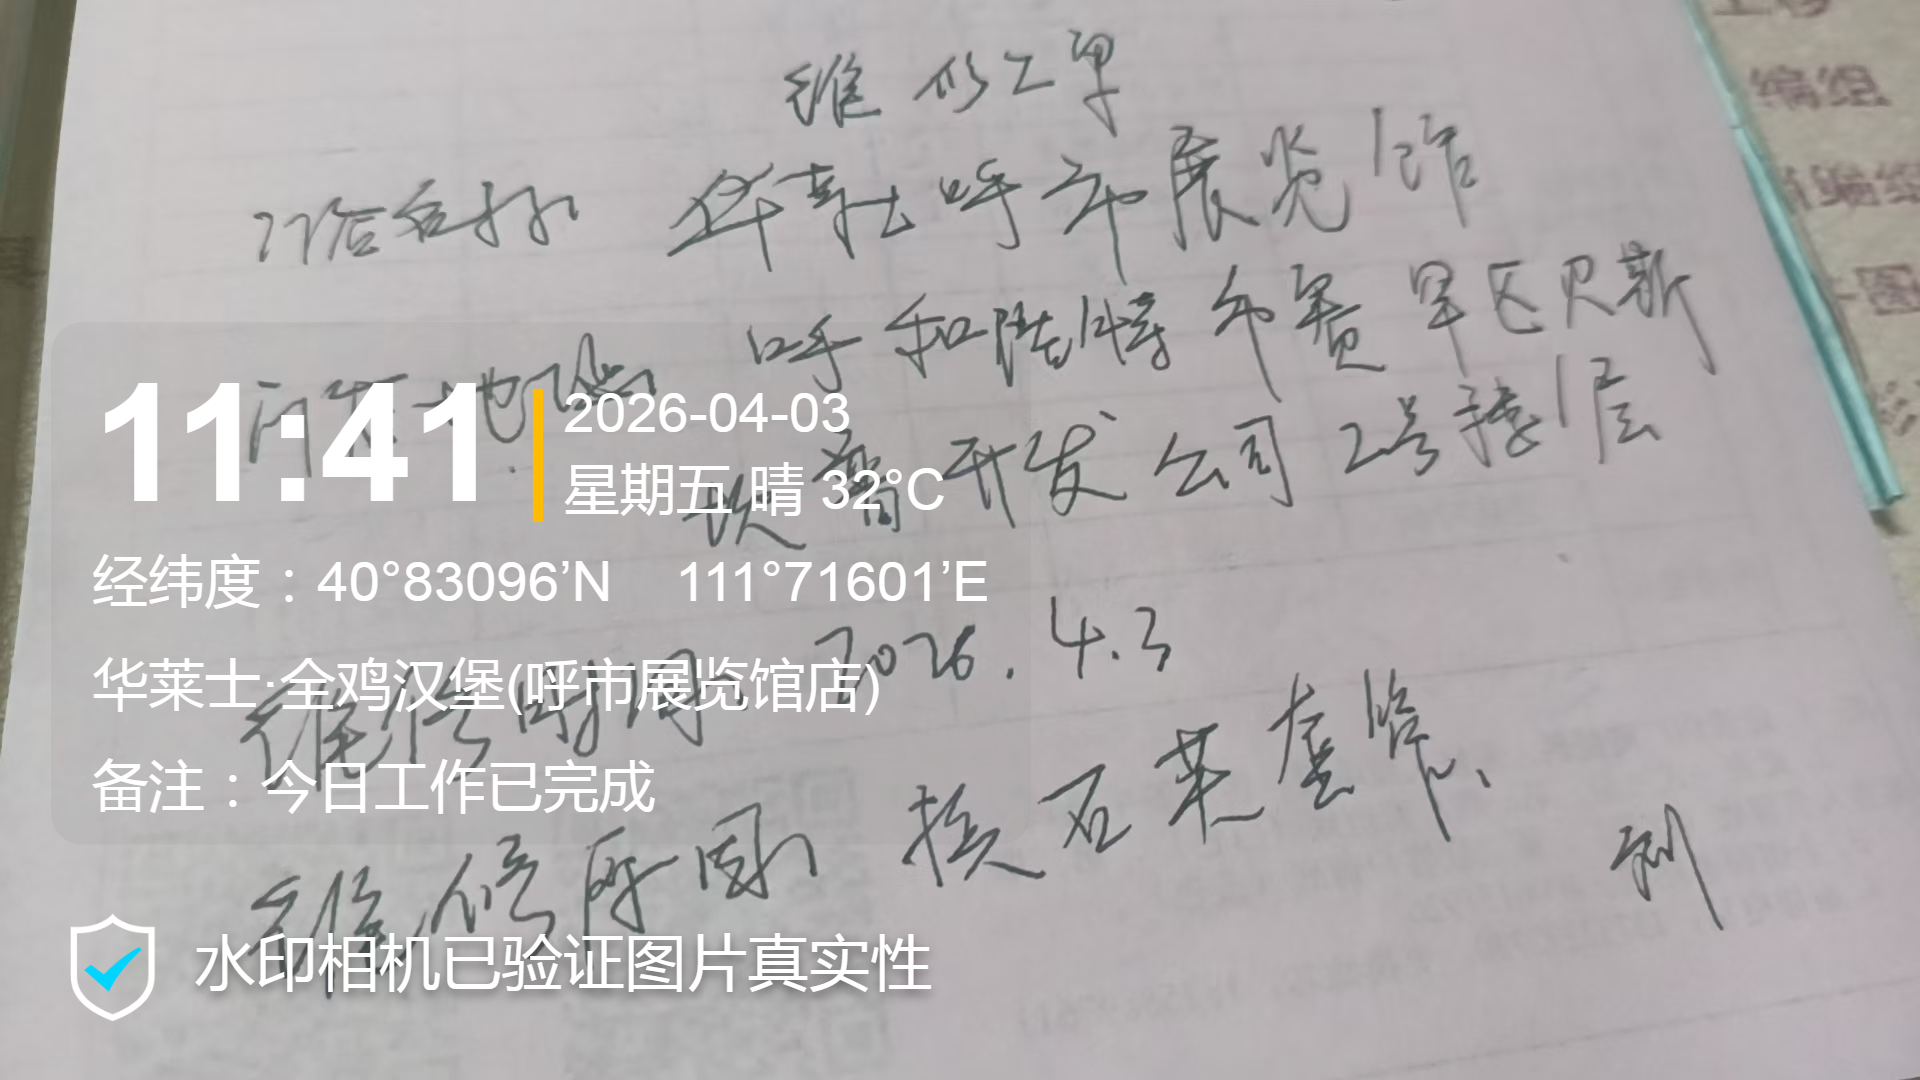 维修工单
门店名称 华莱士呼市展览馆
所在地址 呼和浩特市赛罕区贝斯
欧普开发公司2号楼1层
维修时间 2026.4.3
维修原因 换石英套管、
11:41
2026-04-03
星期五 晴 32°C
经纬度：40°83096’N 111°71601’E
华莱士·全鸡汉堡(呼市展览馆店)
备注：今日工作已完成
水印相机已验证图片真实性
编组